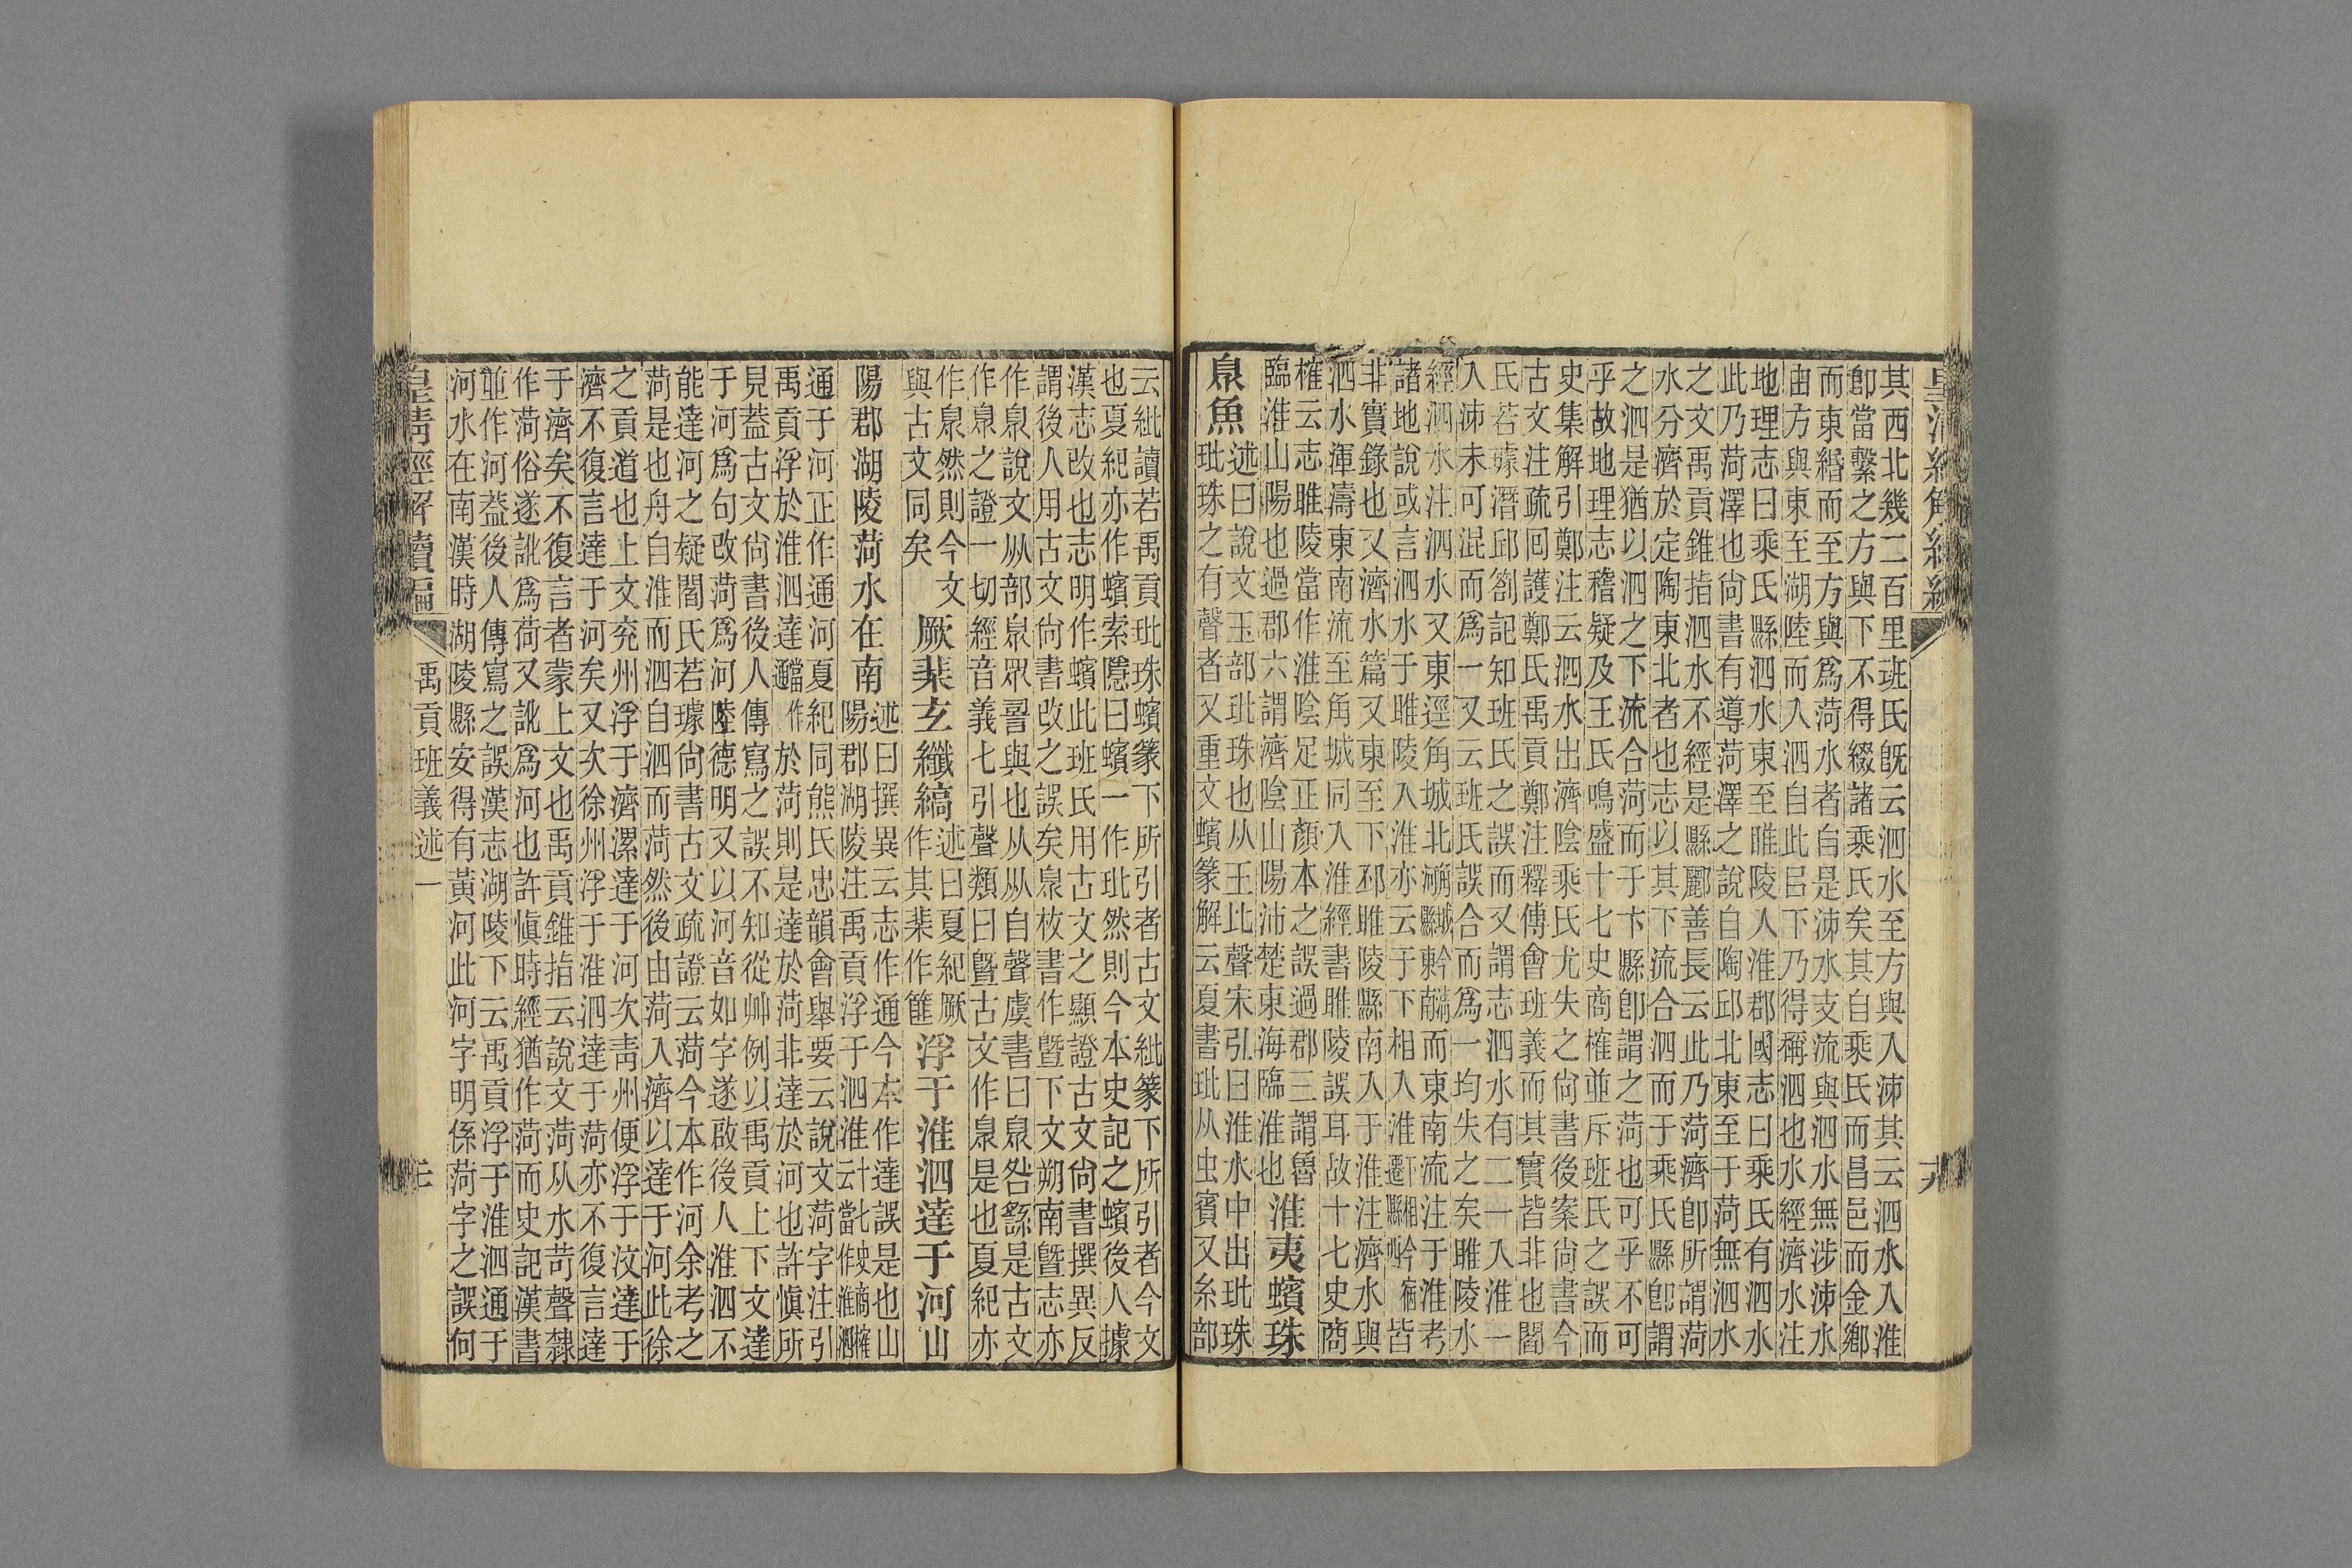 其西北幾二百里班氏既云泗水至方與入泲其云泗水入淮
卽當繫之方與下不得綴諸乘氏矣其自乘氏而昌邑而金鄉
而東緡而至方與爲菏水者自是泲水支流與泗水無涉泲水
由方與東至湖陸而入泗自此㠯下乃得稱泗也水經濟水注
地理志曰乘氏縣泗水東至睢陵入淮郡國志曰乘氏有泗水
此乃菏澤也尙書有導菏澤之說自陶邱北東至于菏無泗水
之文禹貢錐指泗水不經是縣酈善長云此乃菏濟卽所謂菏
水分濟於定陶東北者也志以其下流合泗而于乘氏縣卽謂
之泗是猶以泗之下流合菏而于卞縣卽謂之菏也可乎不可
乎故地理志稽疑及王氏鳴盛十七史商榷並斥班氏之誤而
史集解引鄭注云泗水出濟陰乘氏尤失之尙書後案尙書今
古文注疏回護鄭氏禹貢鄭注釋傳會班義而其實皆非也閻
氏若璩潛邱劄記知班氏之誤而又謂志泗水有二一入淮一
入泲未可混而爲一又云班氏誤合而爲一均失之矣睢陵水
經泗水注泗水又東逕角城北而東南流注于淮考
諸地說或言泗水于睢陵入淮亦云于下相入淮皆
非實錄也又濟水篇又東至下邳睢陵縣南入于淮注濟水與
泗水渾濤東南流至角城同入淮經書睢陵誤耳故十七史商
榷云志睢陵當作淮陰足正顏本之誤過郡三謂魯 淮夷蠙珠
臨淮山陽也過郡六謂濟陰山陽沛楚東海臨淮也
臮魚 述曰說文玉部玭珠也从王比聲宋引曰淮水中出玭珠
玭珠之有聲者又重文蠙篆解云夏書玭从虫賓又糸部
云紕讀若禹貢玭珠蠙篆下所引者古文紕篆下所引者今文
也夏紀亦作蠙索隱曰蠙一作玭然則今本史記之蠙後人據
漢志改也志明作蠙此班氏用古文之顯證古文尙書撰異反
謂後人用古文尙書改之誤矣臮枚書作曁下文朔南曁志亦
作臮說文㐺部臮眾詞與也从㐺自聲虞書曰臮咎繇是古文
作臮之證一切經音義七引聲類曰曁古文作臮是也夏紀亦
作臮然則今文 厥棐玄纖縞 述曰夏紀厥 浮于淮泗達于河 山
與古文同矣 作其棐作篚
陽郡湖陵菏水在南 述曰撰異云志作通今本作達誤是也山
陽郡湖陵注禹貢浮于泗淮 通于河正作通河夏紀同熊氏忠韻會舉要云說文菏字注引
禹貢浮於淮泗達於菏則是達於菏非達於河也許愼所
見蓋古文尙書後人傳寫之誤不知從艸例以禹貢上下文達
于河爲句改菏爲河陸德明又以河音如字遂啟後人淮泗不
能達河之疑閻氏若璩尙書古文疏證云菏今本作河余考之
菏是也舟自淮而泗自泗而菏然後由菏入濟以達于河此徐
之貢道也上文兖州浮于濟漯達于河次靑州便浮于汶達于
濟不復言達于河矣又次徐州浮于淮泗達于菏亦不復言達
于濟矣不復言者蒙上文也禹貢錐指云說文菏从水苛聲隸
作菏俗遂訛爲荷又訛爲河也許愼時經猶作菏而史記漢書
並作河蓋後人傳寫之誤漢志湖陵下云禹貢浮于淮泗通于
河水在南漢時湖陵縣安得有黃河此河字明係菏字之誤何
皇淸經解續編 禹貢班義述一